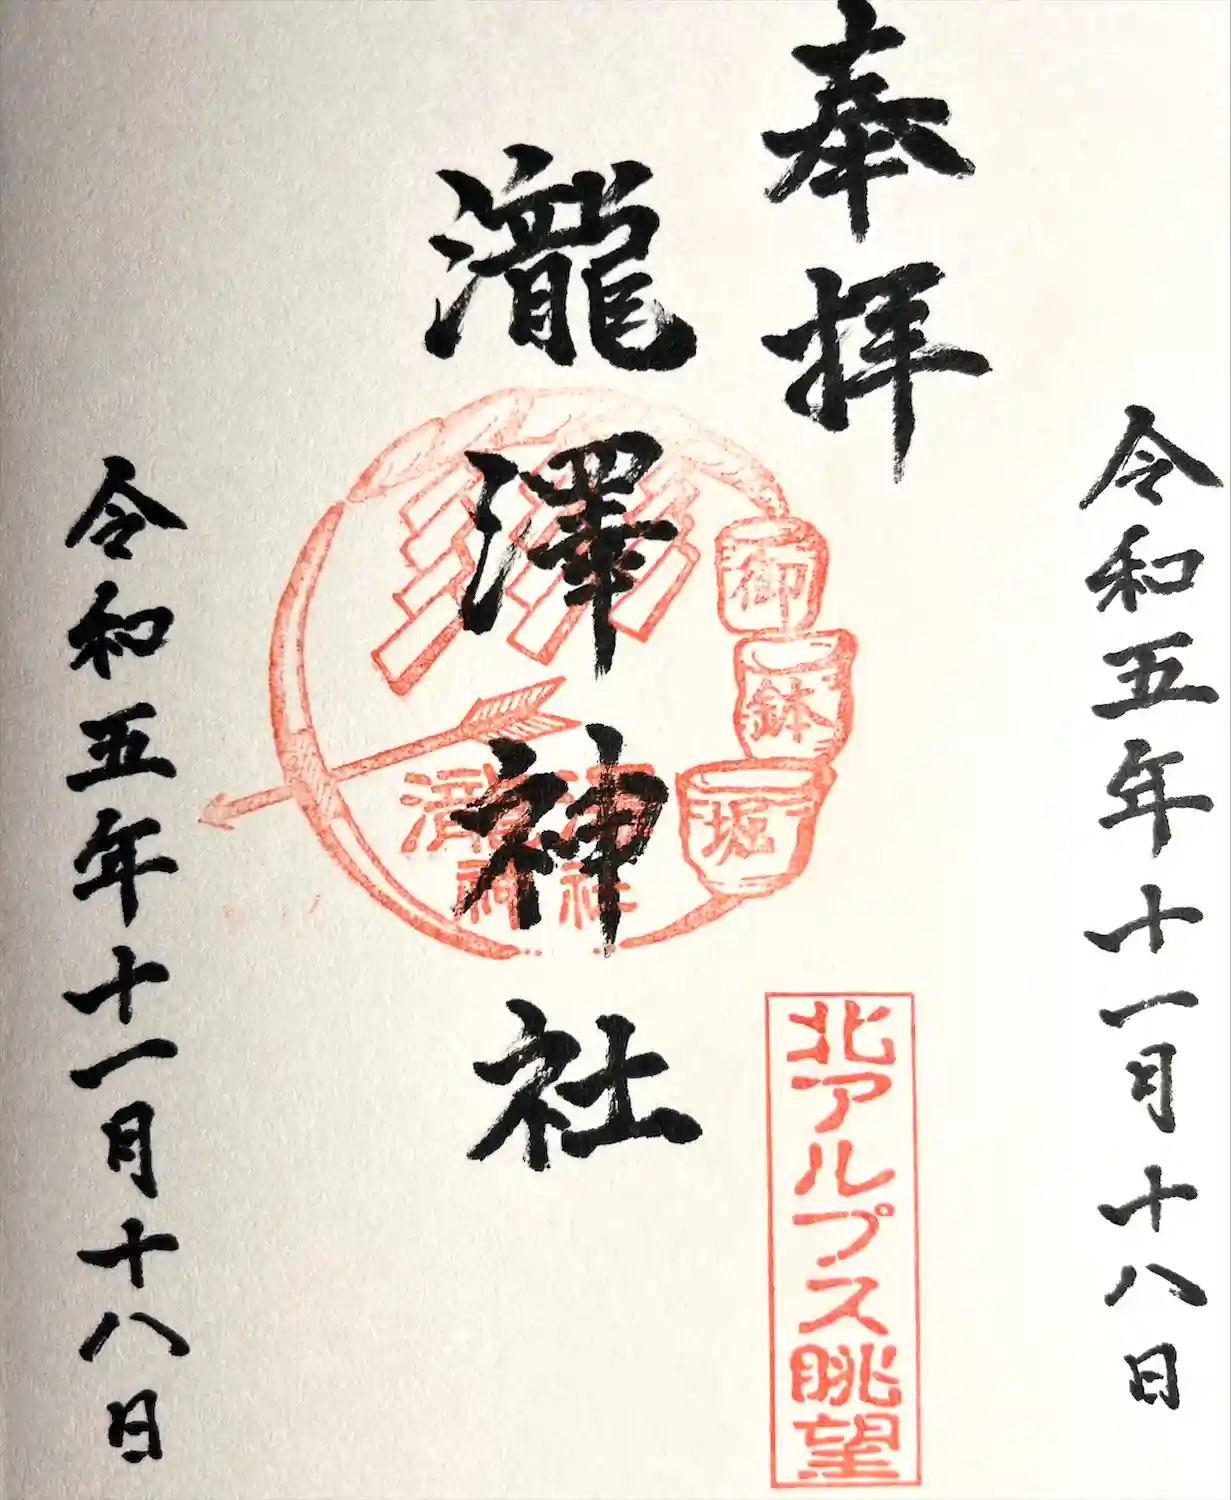 令和五年十一月十八日
奉拝
北アルプス眺望
御鉢堀
瀧澤神社
瀧澤
神社
令和五年十一月十八日